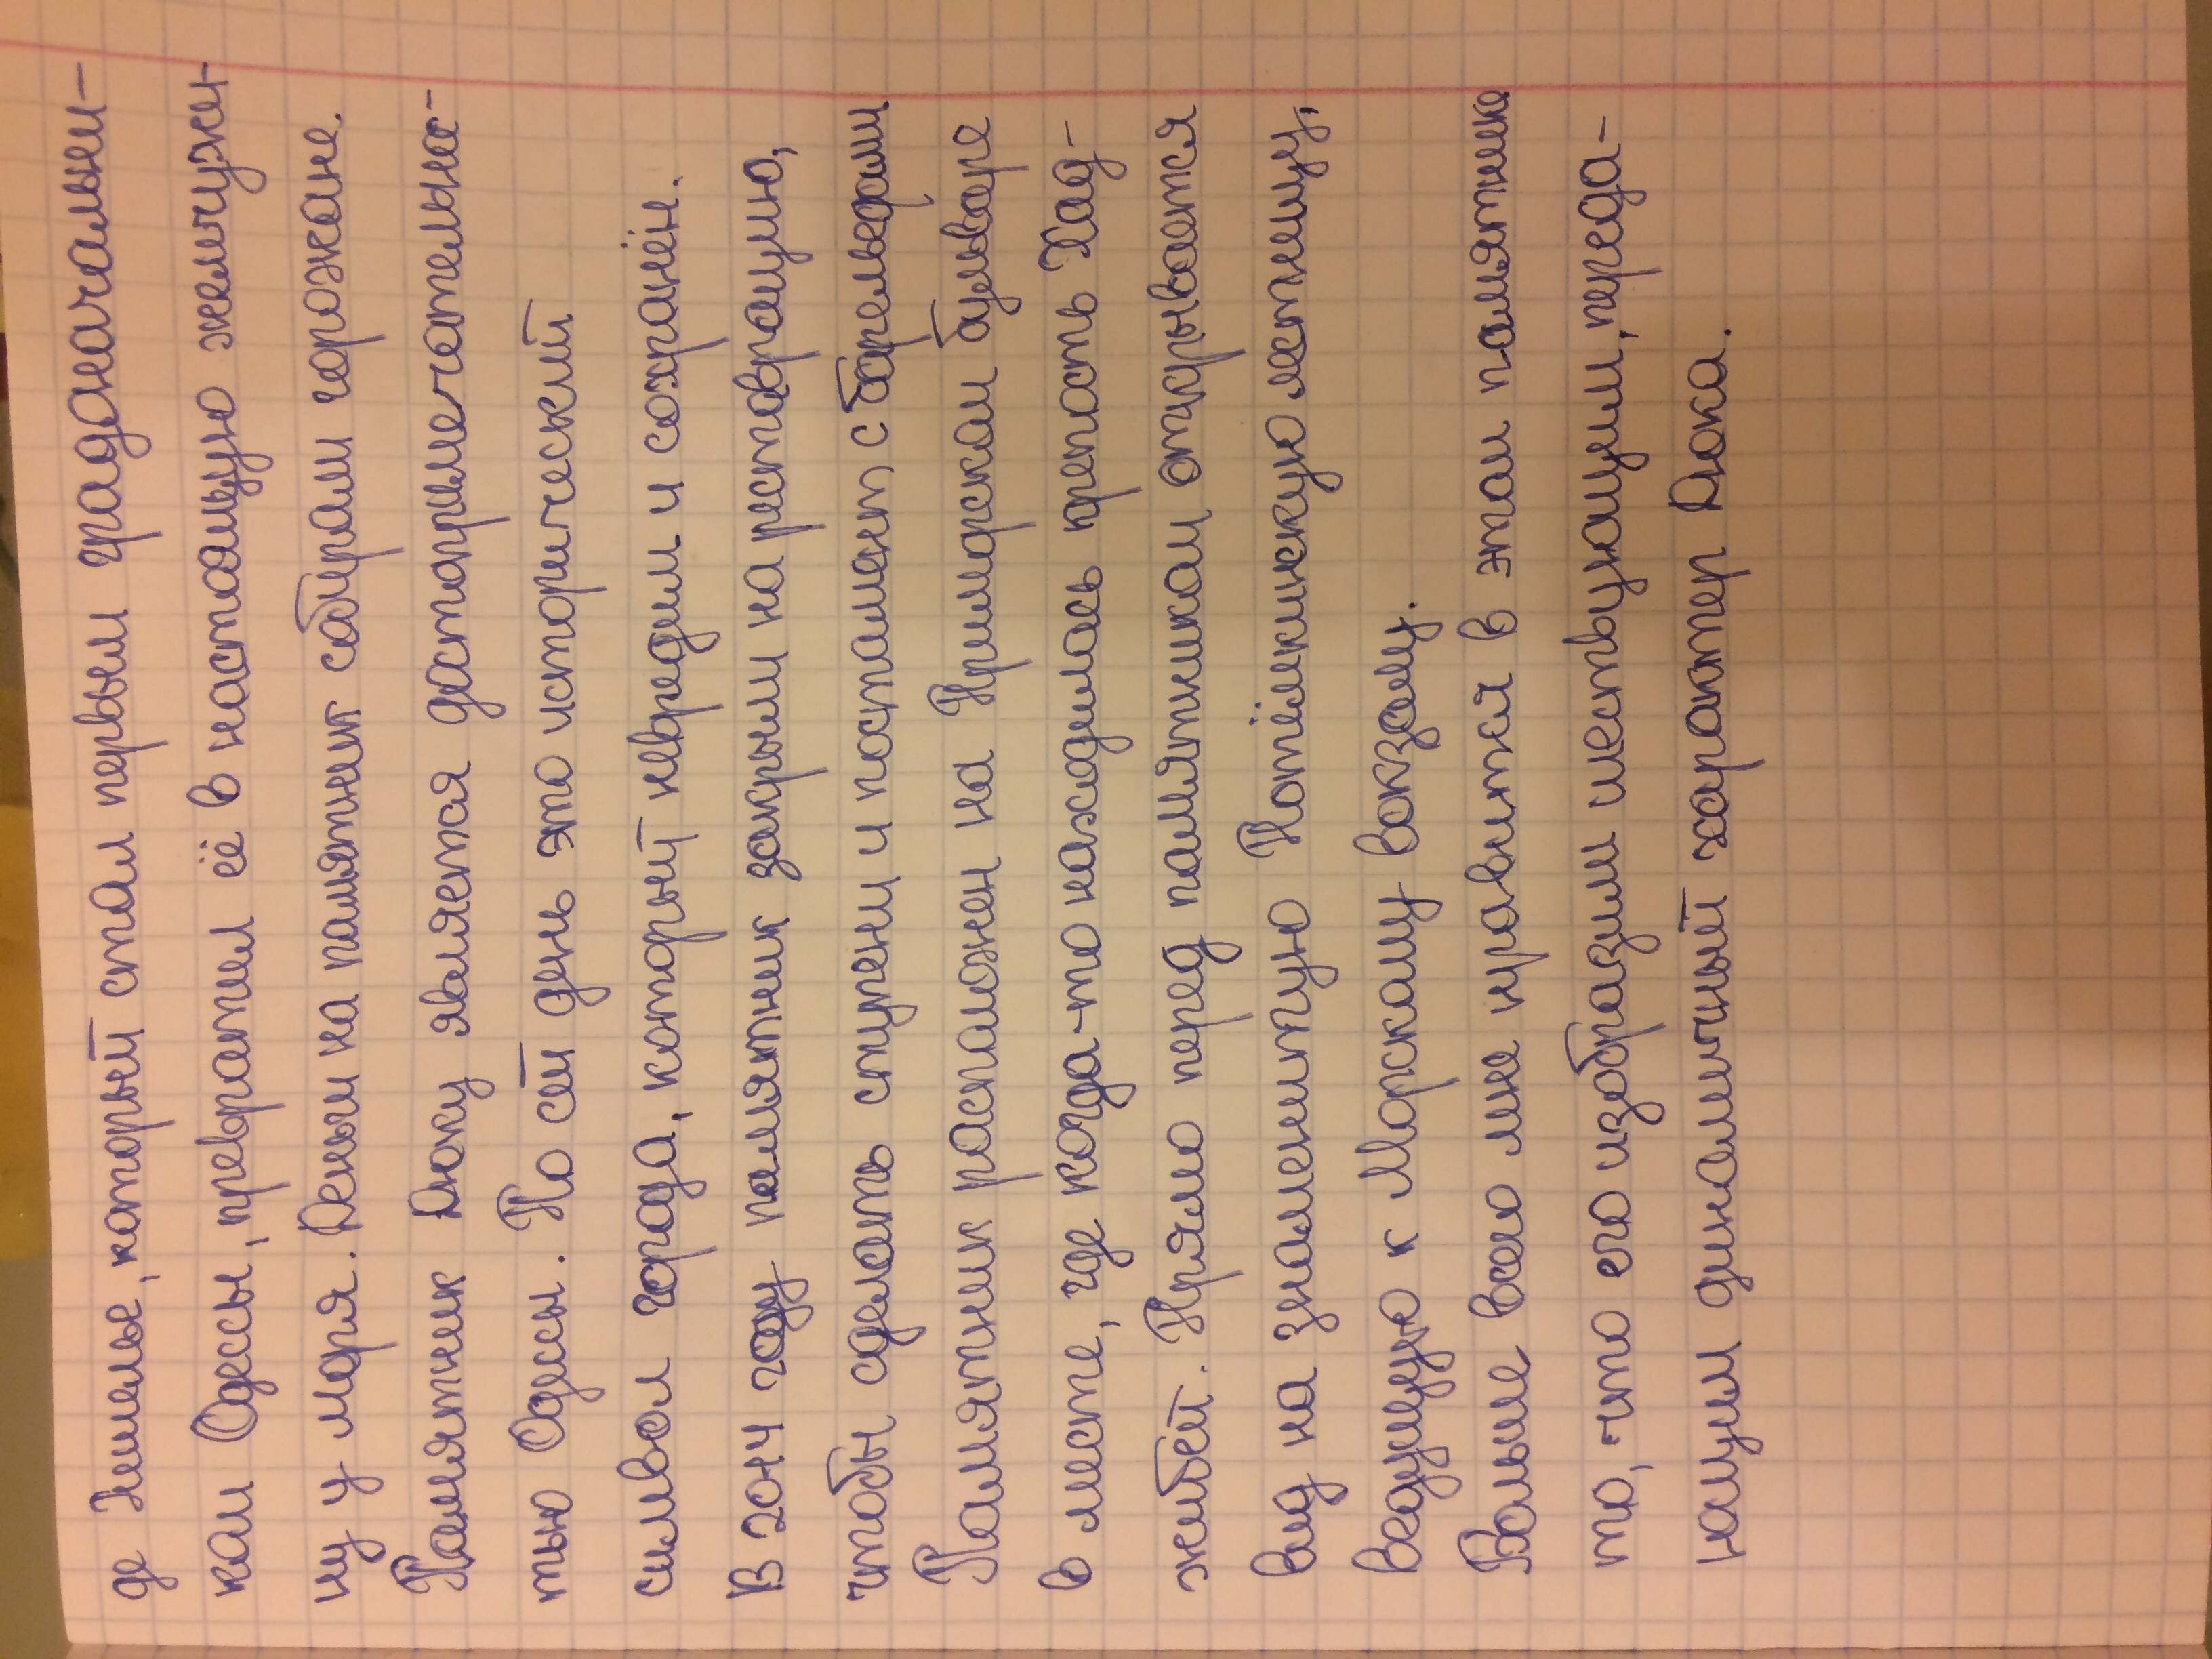 де Ришелье, который стал первым градоначальни-
ком Одессы, превратил её в настоящую жемчужи-
ну у моря. Деньги на памятник собирали горожане.
Памятник Дюку является достопримечательнос-
тью Одессы. По сей день это исторический
символ города, который невредим и сохранён.
В 2014 году памятник закрыли на реставрацию,
чтобы сделать ступени и постамент с барельефами
Памятник расположен на Приморском бульваре
в месте, где когда-то находилась крепость Хад-
жибей. Прямо перед памятником открывается
вид на знаменитую Потёмкинскую лестницу,
ведущую к Морскому вокзалу.
Больше всего мне нравится в этом памятнике
то, что его изобразили шествующим, переда-
ющим динамичный характер Дюка.